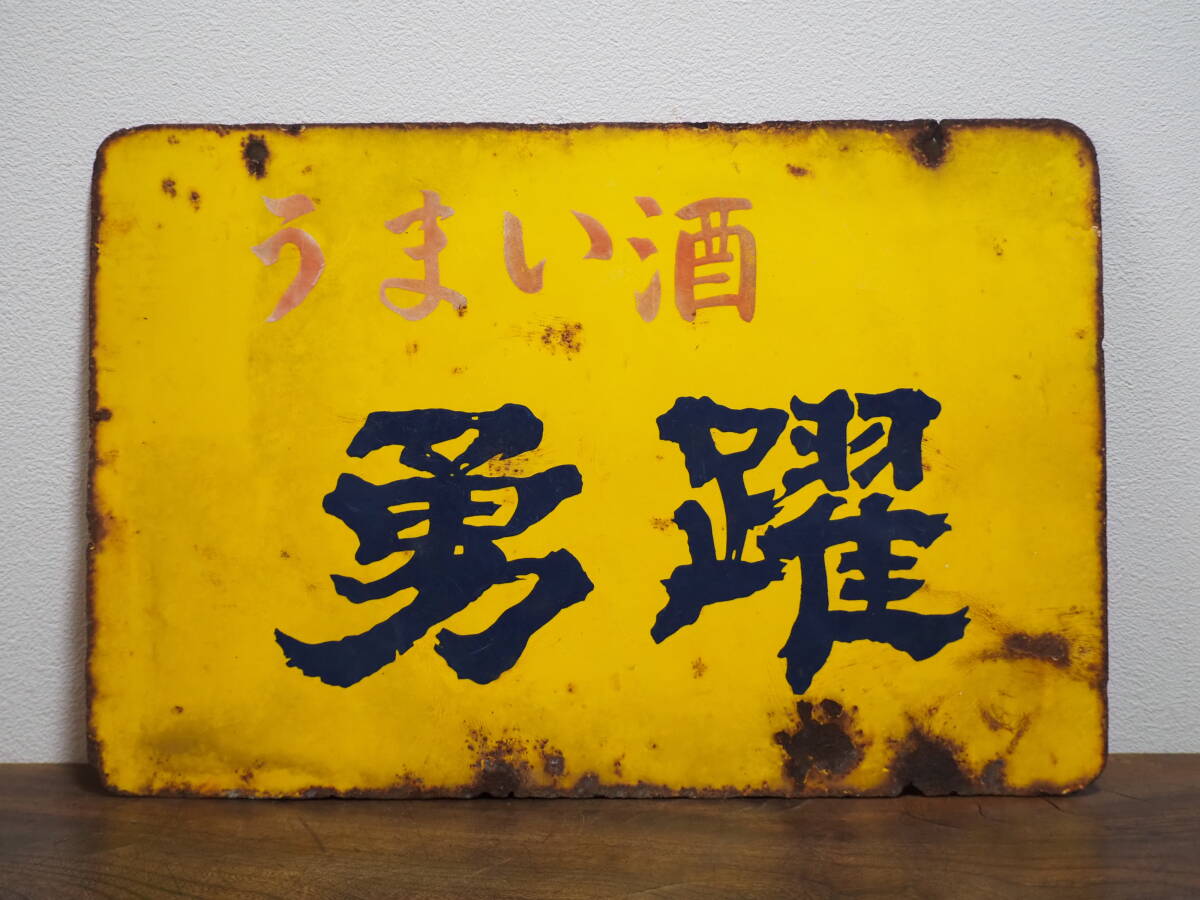 うまい酒
勇躍